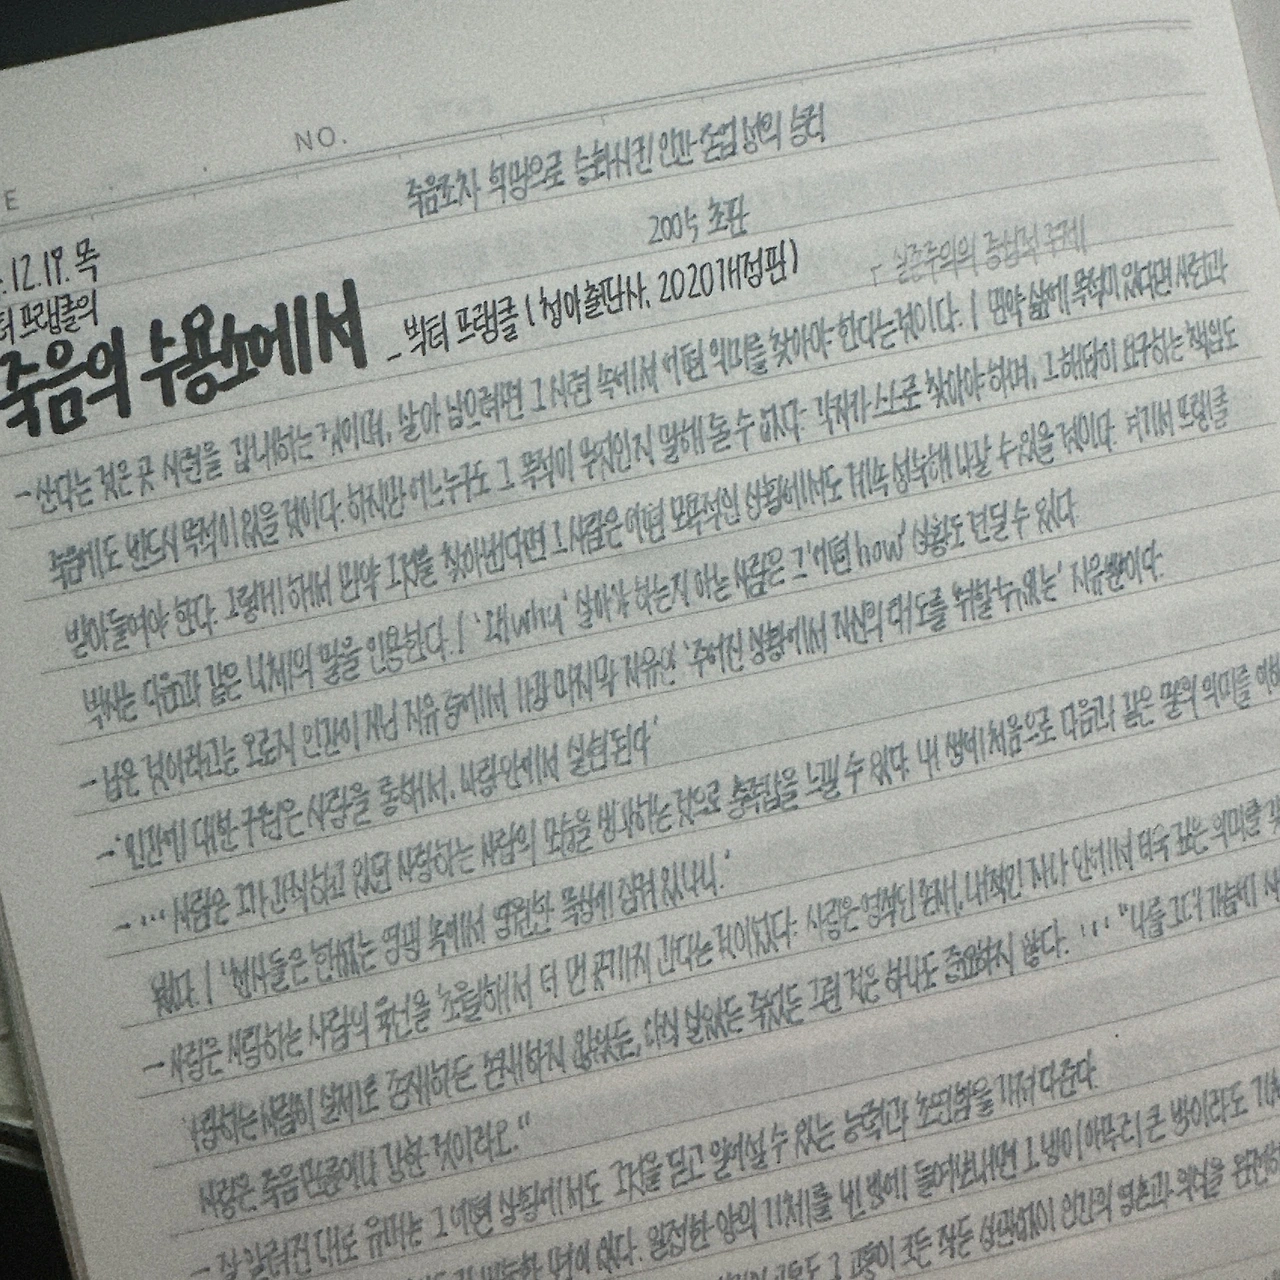 NO.
E
죽음조차 희망으로 승화시킨 인간 존엄성의 승리
.12.19. 목
2005 초판
터 프랭클의
죽음의 수용소에서 _ 빅터 프랭클 (청아출판사, 2020개정판)
실존주의의 중심적 주제
- 산다는 것은 곧 시련을 감내하는 것이며, 살아 남으려면 그 시련 속에서 어떤 의미를 찾아야 한다는 것이다. / 만약 삶에 목적이 있다면 시련과
죽음에도 반드시 목적이 있을 것이다. 하지만 어느 누구도 그 목적이 무엇인지 말해 줄 수 없다. 각자가 스스로 찾아야 하며, 그 해답이 요구하는 책임도
받아들여야 한다. 그렇게 해서 만약 그것을 찾아낸다면 그 사람은 어떤 모욕적인 상황에서도 계속 성숙해 나갈 수 있을 것이다. 여기서 프랭클
박사는 다음과 같은 니체의 말을 인용한다. / '왜 why' 살아야 하는지 아는 사람은 그 '어떤 how' 상황도 견딜 수 있다
- 남은 것이라고는 오로지 인간이 지닌 자유 중에서 가장 마지막 자유인 '주어진 상황에서 자신의 태도를 취할 수 있는' 자유뿐이다.
- '인간에 대한 구원은 사랑을 통해서, 사랑 안에서 실현된다'
- ... 사람은 그가 간직하고 있던 사랑하는 사람의 모습을 생각하는 것으로 충족감을 느낄 수 있다. 내 생애 처음으로 다음과 같은 말의 의미를 이해
했다. / '천사들은 한없는 영광 속에서 영원한 묵상에 잠겨 있나니.'
- 사랑은 사랑하는 사람의 육신을 초월해서 더 먼 곳까지 간다는 것이었다. 사랑은 영적인 존재, 내적인 자아 안에서 더욱 깊은 의미를
사랑하는 사람이 실제로 존재하든 존재하지 않았든, 아직 살았든 죽었든 그런 것은 하나도 중요하지 않다. ... "나를 그대 가슴에
사랑은 죽음만큼이나 강한 것이라오."
- 잘 알려진 대로 유머는 그 어떤 상황에서도 그것을 딛고 일어설 수 있는 능력과 초연함을 가져다준다.
면이 있다. 일정한 양의 기체를 빈 방에 들여보내면 그 방이 아무리 큰 방이라도 기
고통도 그 고통이 크든 작든 상관없이 인간의 영혼과 의식을 완전하